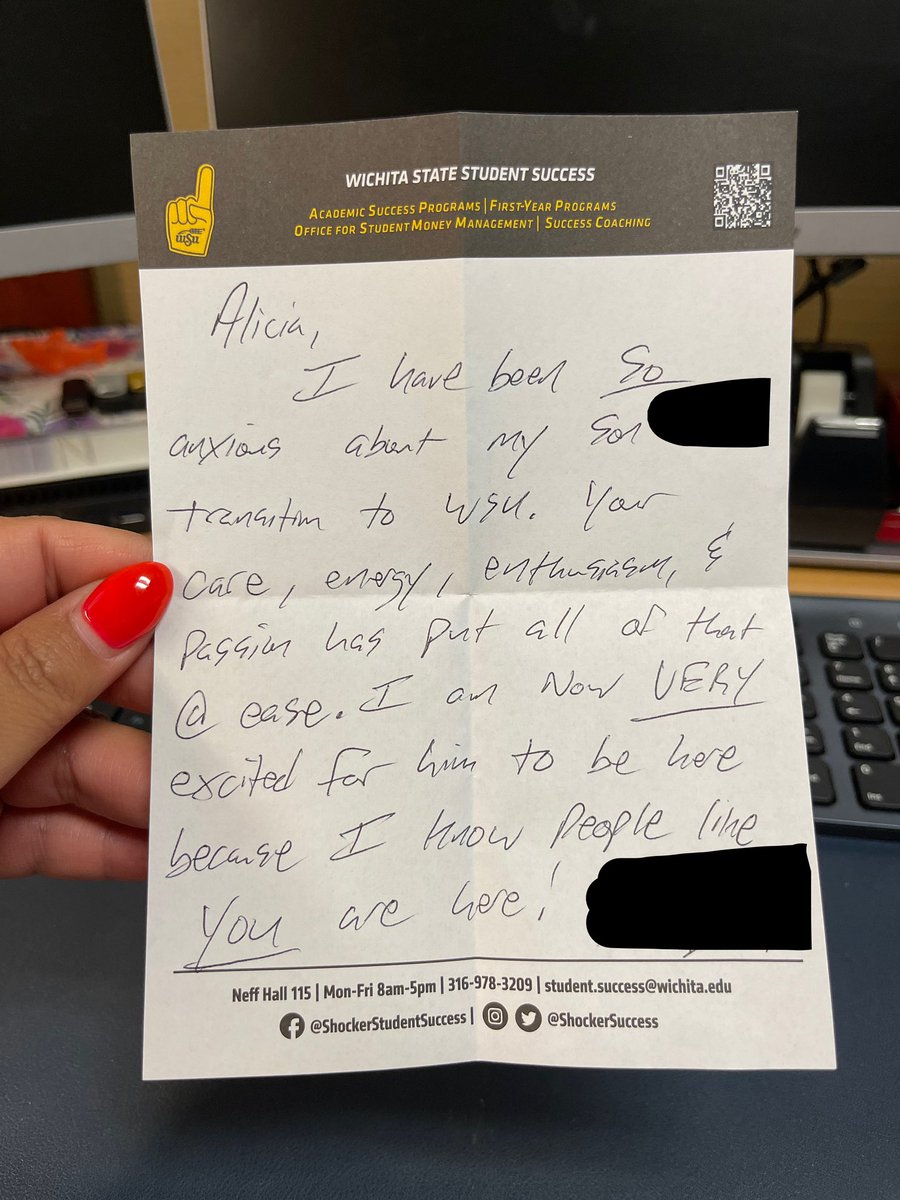 WICHITA STATE STUDENT SUCCESS
ACADEMIC SUCCESS PROGRAMS | FIRST-YEAR PROGRAMS
OFFICE FOR STUDENT MONEY MANAGEMENT | SUCCESS COACHING
WSU
Alicia,
I have been so
anxious about my son
transition to WSU. Your
care, energy, enthusiasm, &
passion has put all of that
@ ease. I am Now VERY
excited for him to be here
because I know people like
YOU are here!
Neff Hall 115 | Mon-Fri 8am-5pm | 316-978-3209 | student.success@wichita.edu
@ShockerStudentSuccess | @ShockerSuccess